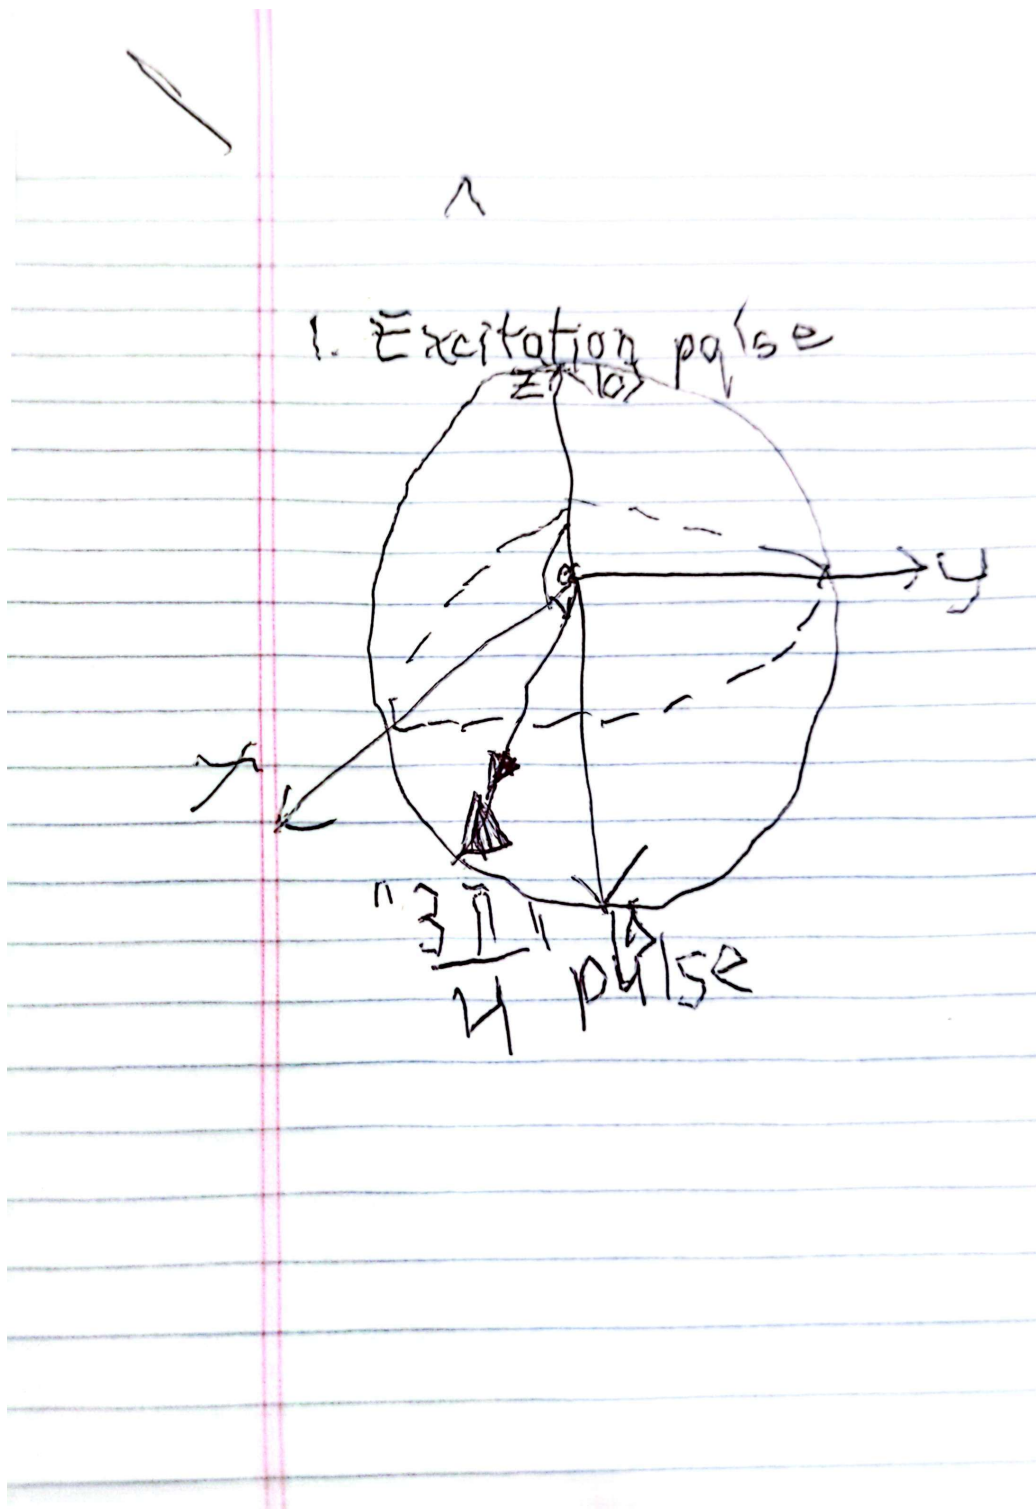 1. Excitation pqlse
z |0>
y
x
"3π/4" pulse
|1>